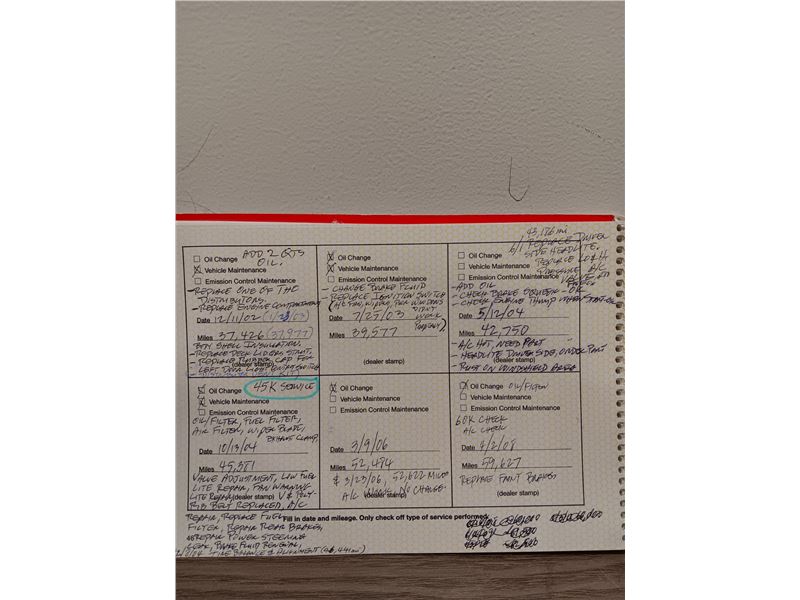 ☐ Oil Change ADD 2 QTS
OIL.
☒ Vehicle Maintenance
☐ Emission Control Maintenance
- REPLACE ONE OF THE
DISTRIBUTORS.
- REPLACE ENGINE COMPARTMENT
Date 12/11/02 (1/23/03)
Miles 37,426 (37,977)
BODY SHELL INSULATION.
- REPLACE DECK LID GAS STRUT,
- REPLACE RUBBER CAP FOR
(dealer stamp)
LEFT DOOR LIGHT CONTROL SWITCH
☒ Oil Change
☒ Vehicle Maintenance
☐ Emission Control Maintenance
- CHANGE BRAKE FLUID
- REPLACE IGNITION SWITCH
(A/C FAN, WIPERS, PWR WINDOWS
DIDN'T
WORK
PROPERLY)
Date 7/25/03
Miles 39,577
(dealer stamp)
43,186 mi
6/1 REPLACE DRIVER
SIDE HEADLITE.
☐ Oil Change
☐ Vehicle Maintenance
☐ Emission Control Maintenance
- ADD OIL
- CHECK BRAKE SQUEAK - OK
Date 5/12/04
Miles 42,750
- A/C HOT, NEED PART
- HEADLITE DRIVER SIDE, ORDER PART
(dealer stamp)
- RUST ON WINDSHIELD AREA
☒ Oil Change 45K SERVICE
☒ Vehicle Maintenance
☐ Emission Control Maintenance
OIL/FILTER, FUEL FILTER,
AIR FILTER, WIPER BLADE,
EXHAUST CLAMP,
Date 10/13/04
Miles 45,381
VALVE ADJUSTMENT, LOW FUEL
LITE REPAIR, FAN WARNING
LITE REPAIR (dealer stamp) V & POLY-
RIB BELT REPLACED, A/C
REPAIR, REPLACE FUEL
FILTER, REPAIR REAR BRAKES,
REPAIR POWER STEERING
LEAK, BRAKE FLUID RENEWAL,
TIRE BALANCE & ALIGNMENT
☒ Oil Change
☐ Vehicle Maintenance
☐ Emission Control Maintenance
Date 3/9/06
Miles 52,484
3/23/06, 52,622 MILES
A/C WORK, NO CHARGE.
(dealer stamp)
☒ Oil Change OIL/FILTER
☐ Vehicle Maintenance
☐ Emission Control Maintenance
60K CHECK
A/C CHECK
Date 4/2/08
Miles 59,627
REPLACE FRONT BRAKES
(dealer stamp)
Fill in date and mileage. Only check off type of service performed.